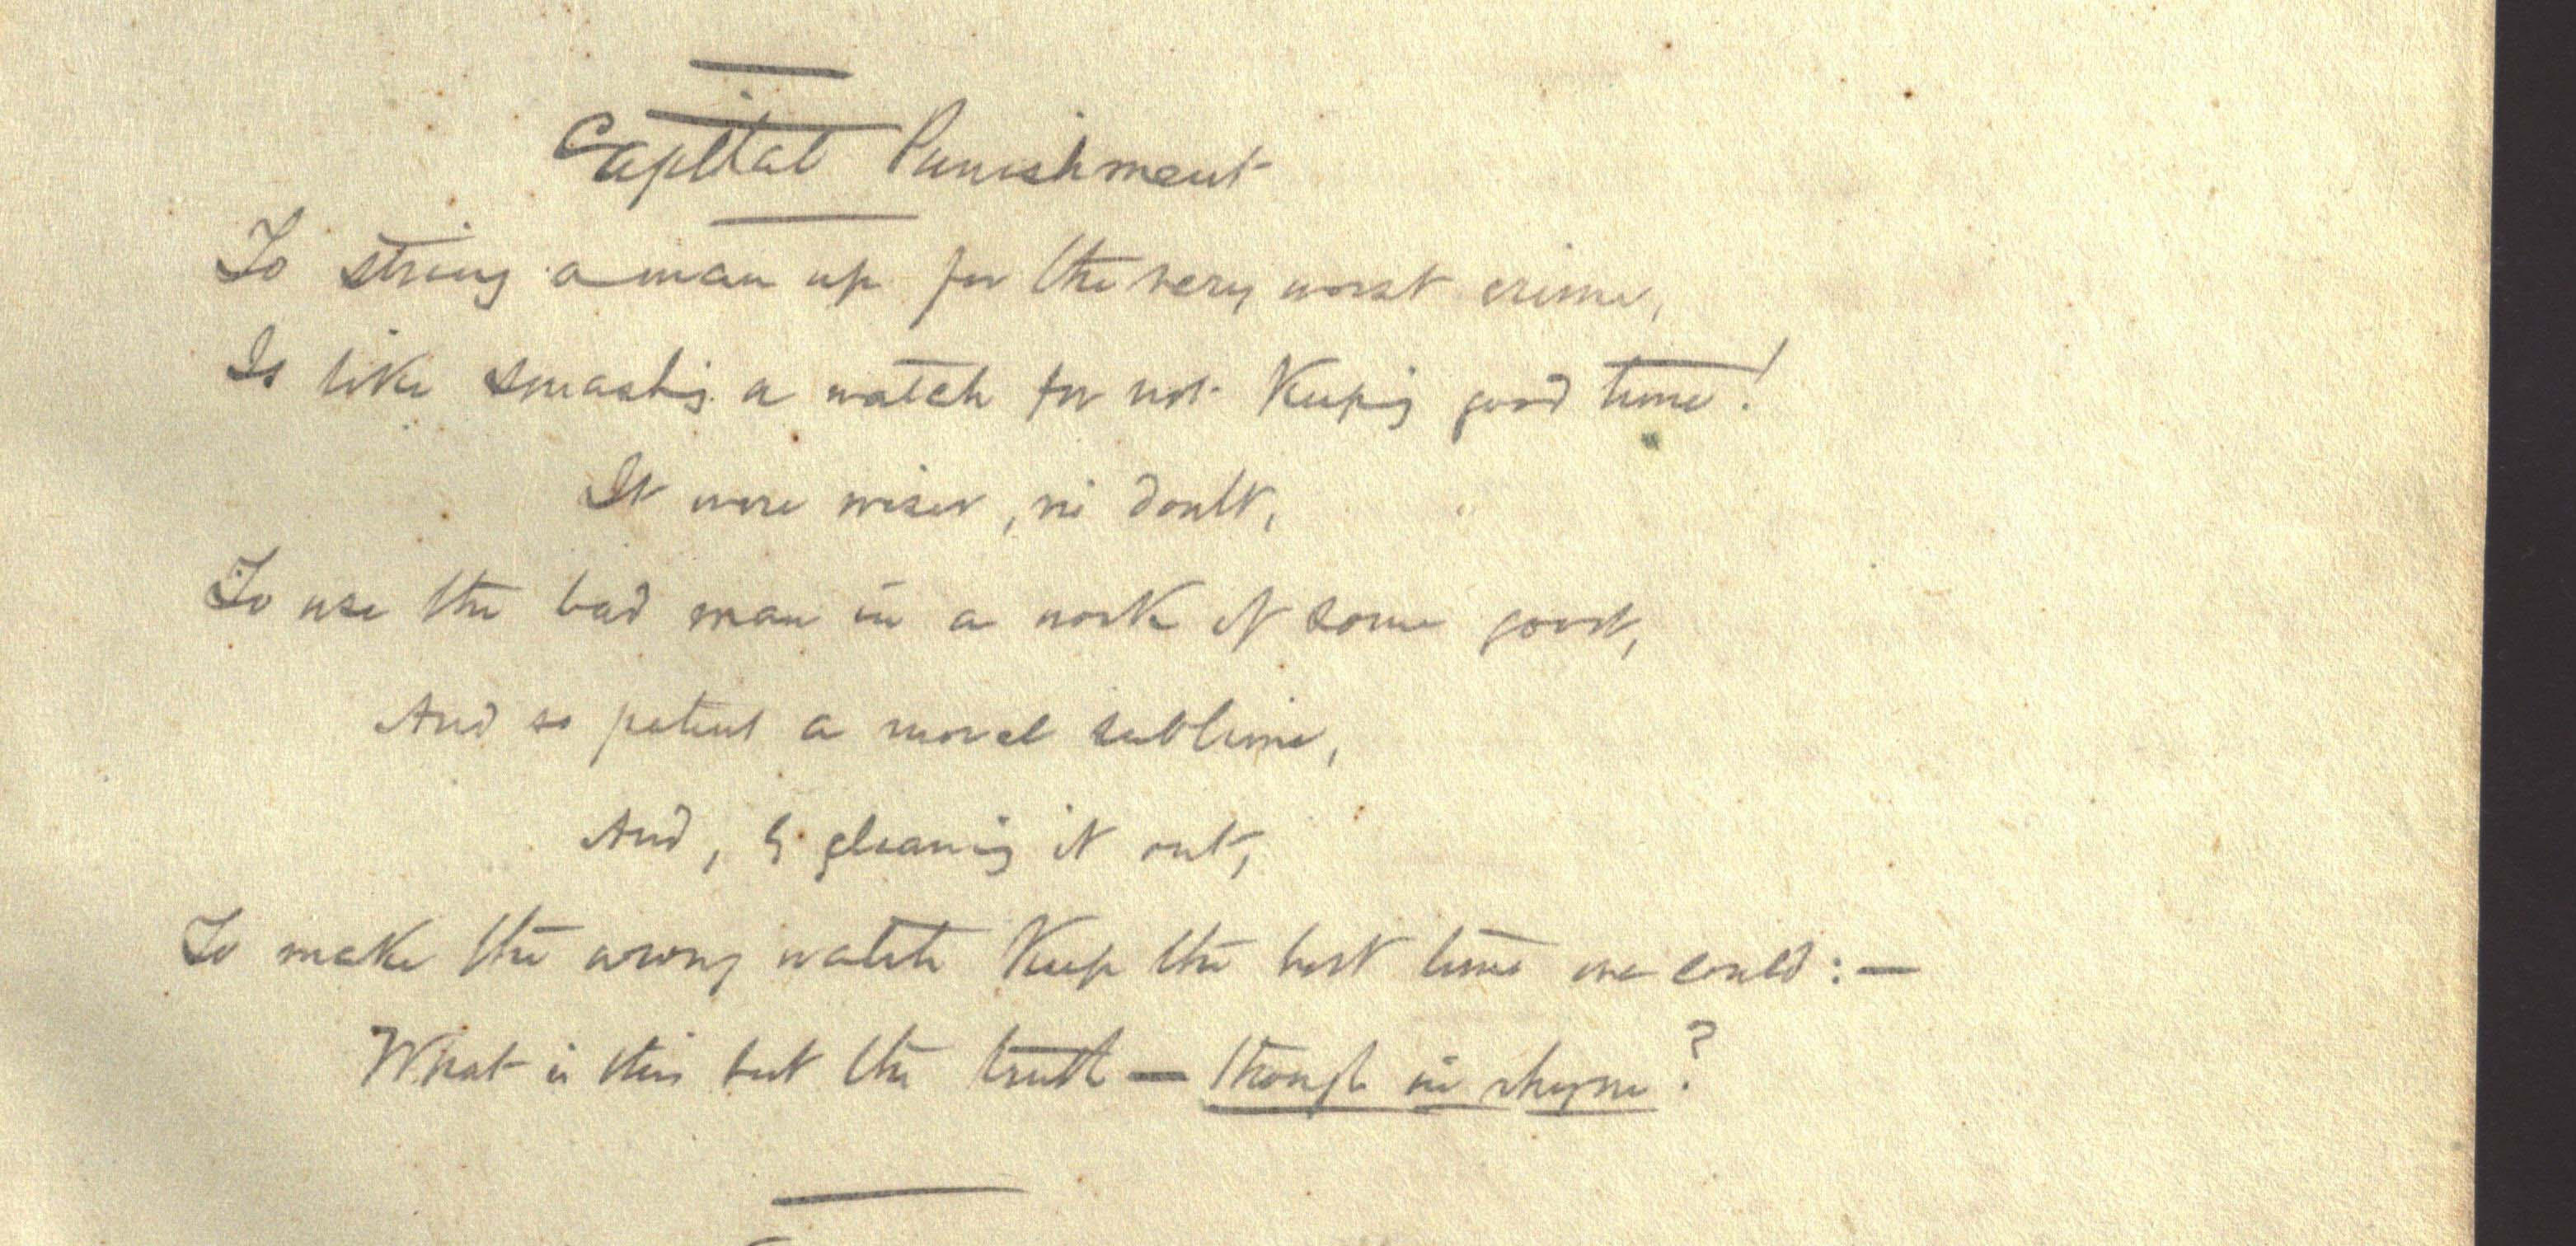 Capital Punishment
To string a man up for the very worst crime,
Is like smashing a watch for not keeping good time!
It were wiser, no doubt,
To use the bad man in a work of some good,
And so patent a moral sublime,
And, by cleaning it out,
To make the wrong watch keep the best time we could:—
What is this but the truth — though in rhyme?